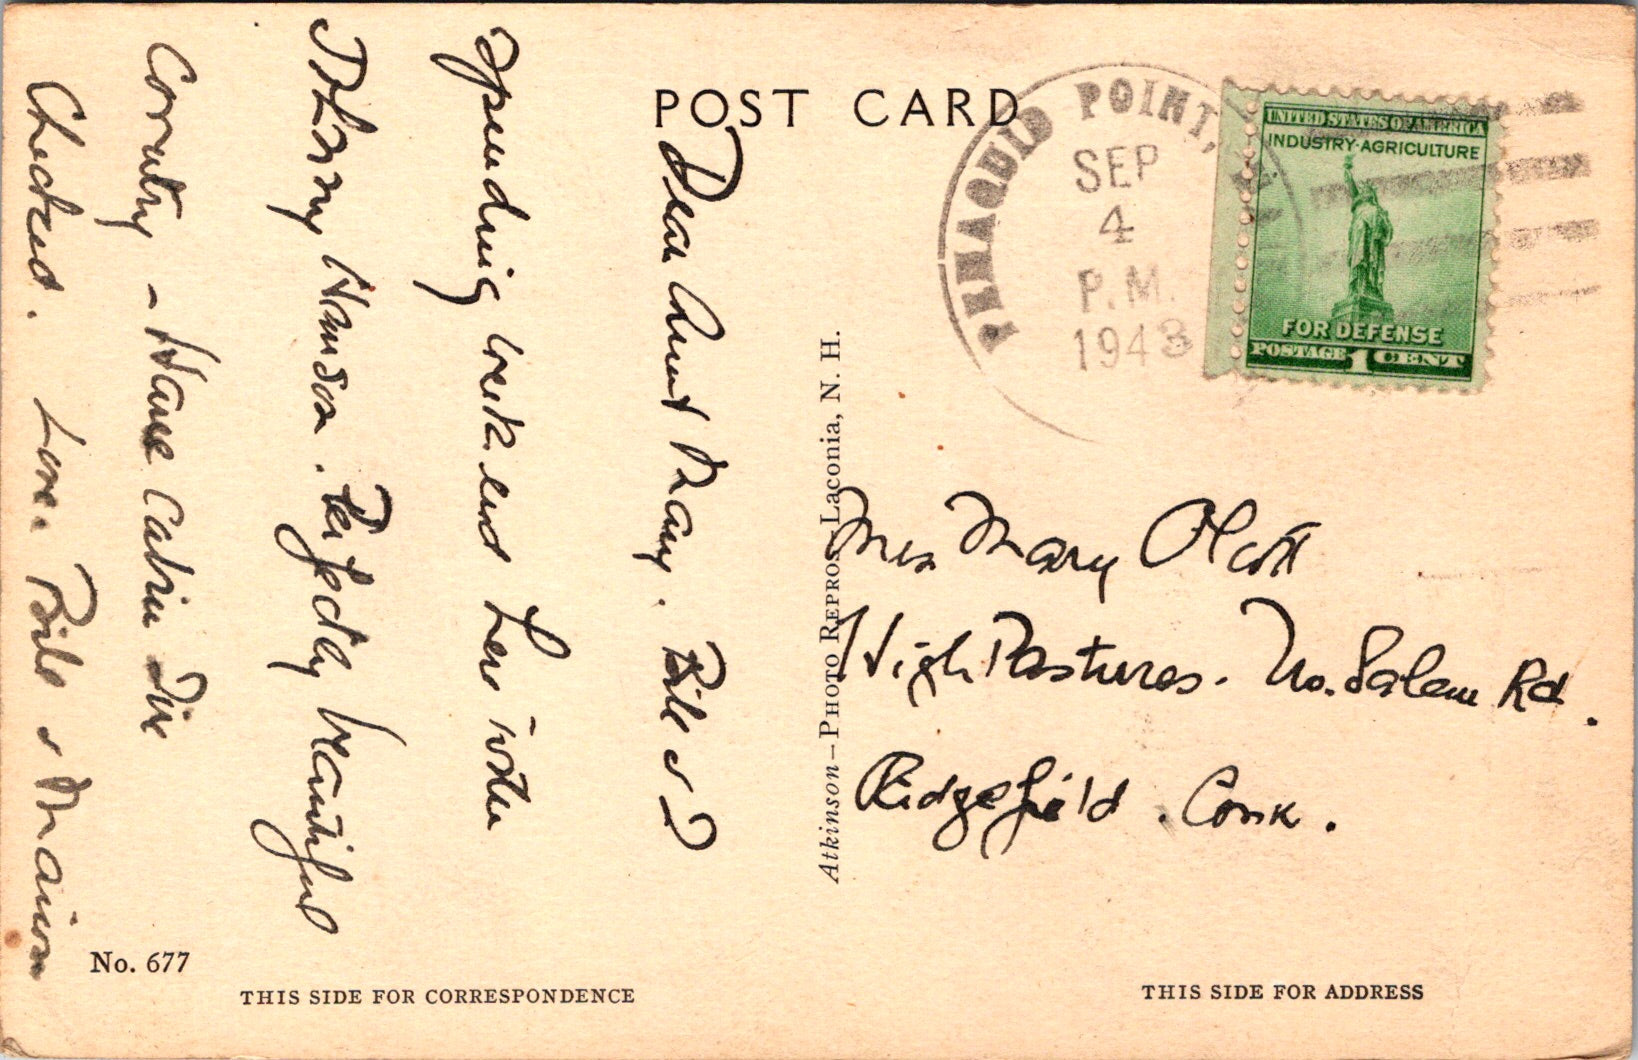 POST CARD
PEMAQUID POINT,
SEP
4
P.M.
1943
UNITED STATES OF AMERICA
INDUSTRY·AGRICULTURE
FOR DEFENSE
POSTAGE 1 CENT
Dear Aunt Mary. Bill & I
spending week end here with
Johnny Hanson. Perfectly beautiful
Country - Have Cabin
Checked. Love. Bill & Marion
Atkinson—Photo Repros, Laconia, N. H.
Mrs Mary Olcott
High Pastures. No. Salem Rd.
Ridgefield. Conn.
No. 677
THIS SIDE FOR CORRESPONDENCE
THIS SIDE FOR ADDRESS